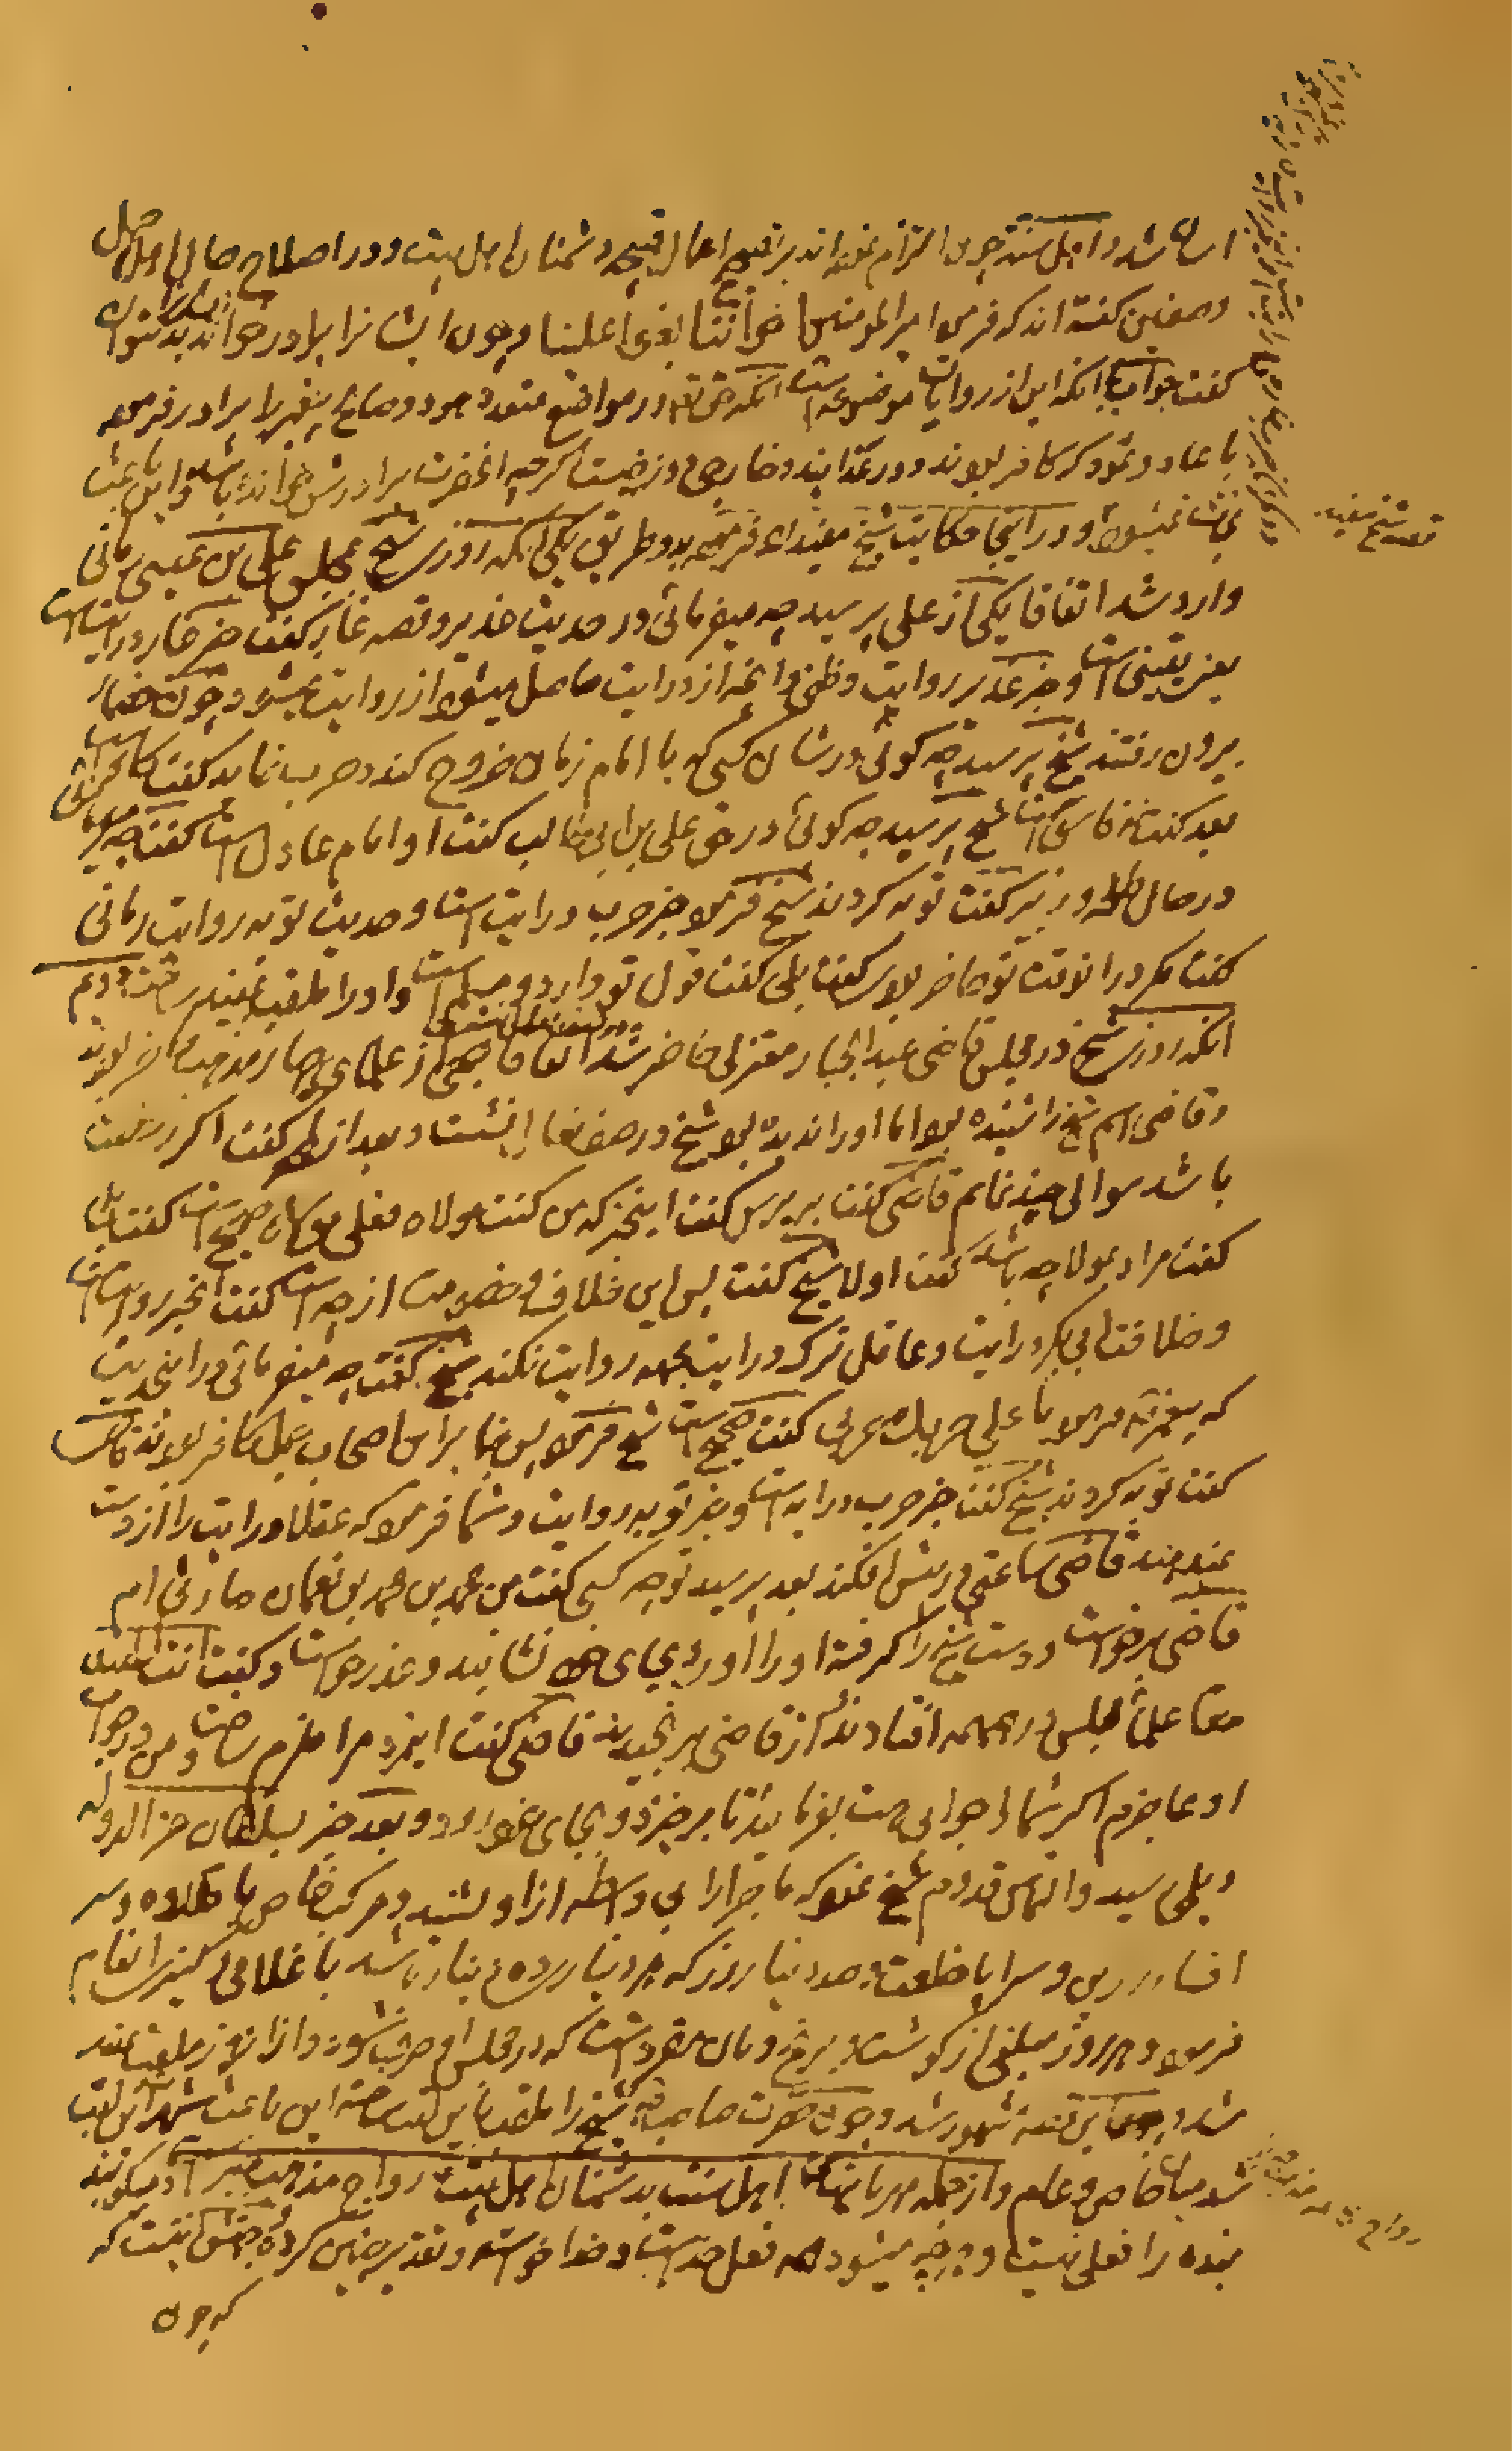 ایشان شد و اهل سنت چون التزام نموده‌اند بر تصحیح اعمال قبیحه دشمنان اهل بیت و در اصلاح حال اهل جمل
و صفین گفته‌اند که فرمود امیر المومنین اخواننا بغوا علینا و چون ایشانرا برادر خواند بد نتوان
گفت جواب انکه این از روایات موضوعه است انکه حق تع در مواضع متعدده هود و صالح پیغمبر را برادر فرموده
با عاد و ثمود که کافر بودند و در عذابند و خارجی دوزخیست اگرچه انحضرت برادرش خوانده باشد و این باعث
نجات نمیشود و در اینجا حکایت شیخ مفید به دو طریق یکی انکه روزی شیخ بمجلس علی بن عیسی رمانی
وارد شد اتفاقا یکی از علی پرسید چه میفرمائی در حدیث غدیر و قصه غار گفت خبر غار درایت است
یعنی یقینی است و خبر غدیر روایت و ظنی و انچه از درایت حاصل میشود از روایت نمیشود چون حضار
بیرون رفتند شیخ پرسید چه گوئی در شان کسی که با امام زمان خروج کند و حرب نماید گفت کافر است
بعد گفت نه فاسق است شیخ پرسید چه گوئی در حق علی بن ابی طالب گفت او امام عادل است گفت چه میفرمائی
در حال طلحه و زبیر گفت توبه کردند شیخ فرمود خبر حرب درایت است و حدیث توبه روایت رمانی
گفت مگر در انوقت تو حاضر بودی گفت بلی گفت قول تو وارد و مسلم است و او را ملقب بمفید ساخت دویم
انکه روزی شیخ در مجلس قاضی عبد الجبار معتزلی حاضر شد اتفاقا جمعی از علمای چهار مذهب حاضر بودند
و قاضی اسم شیخ را شنیده بود اما او را ندیده بود شیخ در صف نعال نشست و بعد از لمحه گفت اگر رخصت
باشد سوالی چند نمایم قاضی گفت بپرس گفت این خبر که من کنت مولاه فعلی مولاه صحیح است گفت بلی
گفت مراد بمولا چه باشد گفت اولا شیخ گفت پس این خلاف و خصومت از چه است گفت انخبر روایت است
و خلافت ابی بکر درایت و عاقل ترک درایت بجهه روایت نکند شیخ گفت چه میفرمائی در این حدیث
که پیغمبر فرمود یا علی حربک حربی گفت صحیح است شیخ فرمود پس بنا بر این اصحاب جمل کافر بودند قاضی
گفت توبه کردند شیخ گفت خبر حرب درایه است و خبر توبه روایت و شما فرمود که عقلا درایت را از دست
نمیدهند قاضی ساعتی در پیش افکند بعد پرسید تو چه کسی گفت من محمد بن محمد بن نعمان حارثی ام
قاضی برخواست و دست شیخ را گرفته او را اورده بجای خود نشانید و عذر خواست و گفت انت المفید
حقا علماء مجلس در همهمه افتادند از قاضی برنجیدند قاضی گفت اینمرد مرا ملزم ساخت و من در جواب
او عاجزم اگر شما را جوابی هست بفرمائید تا برخیزد و بجای خود رود و بعد خبر بسلطان عز الدوله
دیلمی رسید و التماس قدوم شیخ نمود که ماجرا را بی واسطه از او بشنید و مرکب خاص با قلاده و سر
افسار زرین و سراپا خلعت و صد دینار زر که هر دینار ده دینار باشد با غلامی و کنیزی انعام
فرمود و هر روز مبلغی از گوشت و برنج و نان مقرر داشت که در مجلس او صرف شود و از انروز ملقب بمفید
شد و این قصه مشهور شد و چون حضرت صاحب شیخ را ملقب باین لقب ساخته این باعث شهرت این لقب
شد میان خاص و عام و از جمله مهربانیهای اهل سنت بدشمنان اهل بیت رواج مذهب جبر است و میگویند
بنده را فعلی نیست و هرچه میشود همه فعل خداست و خدا خواسته و تقدیر چنین کرده و جنس نیست که
که چون
قصه شیخ مفید
رواج مذهب جبر